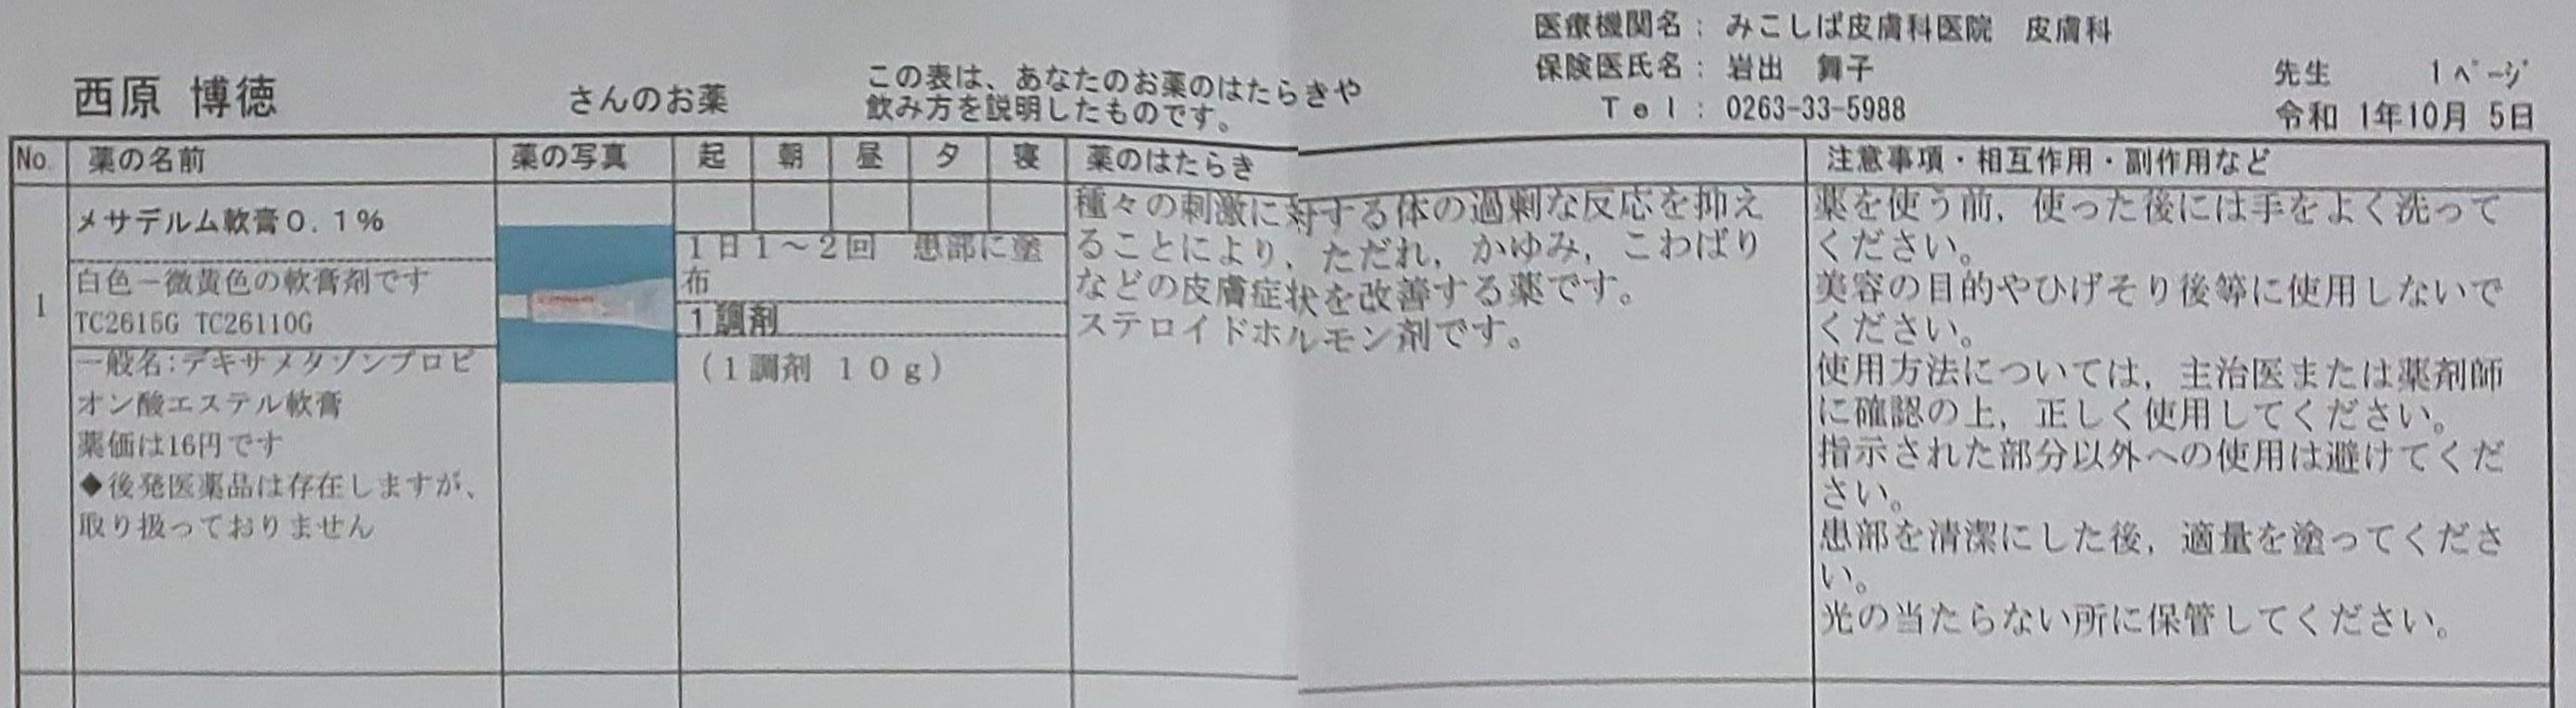 医療機関名： みこしば皮膚科医院 皮膚科
保険医氏名： 岩出 舞子 先生 1ﾍﾟｰｼﾞ
Ｔｅｌ： 0263-33-5988 令和 1年10月 5日
西原 博徳 さんのお薬
この表は、あなたのお薬のはたらきや
飲み方を説明したものです。
No. 薬の名前 薬の写真 起 朝 昼 夕 寝 薬のはたらき 注意事項・相互作用・副作用など
1
メサデルム軟膏０．１％
白色－微黄色の軟膏剤です
TC2615G TC26110G
一般名：デキサメタゾンプロピ
オン酸エステル軟膏
薬価は16円です
◆後発医薬品は存在しますが、
取り扱っておりません
１日１～２回 患部に塗
布
１調剤
（１調剤 １０ｇ）
種々の刺激に対する体の過剰な反応を抑え
ることにより，ただれ，かゆみ，こわばり
などの皮膚症状を改善する薬です。
ステロイドホルモン剤です。
薬を使う前，使った後には手をよく洗って
ください。
美容の目的やひげそり後等に使用しないで
ください。
使用方法については，主治医または薬剤師
に確認の上，正しく使用してください。
指示された部分以外への使用は避けてくだ
さい。
患部を清潔にした後，適量を塗ってくださ
い。
光の当たらない所に保管してください。